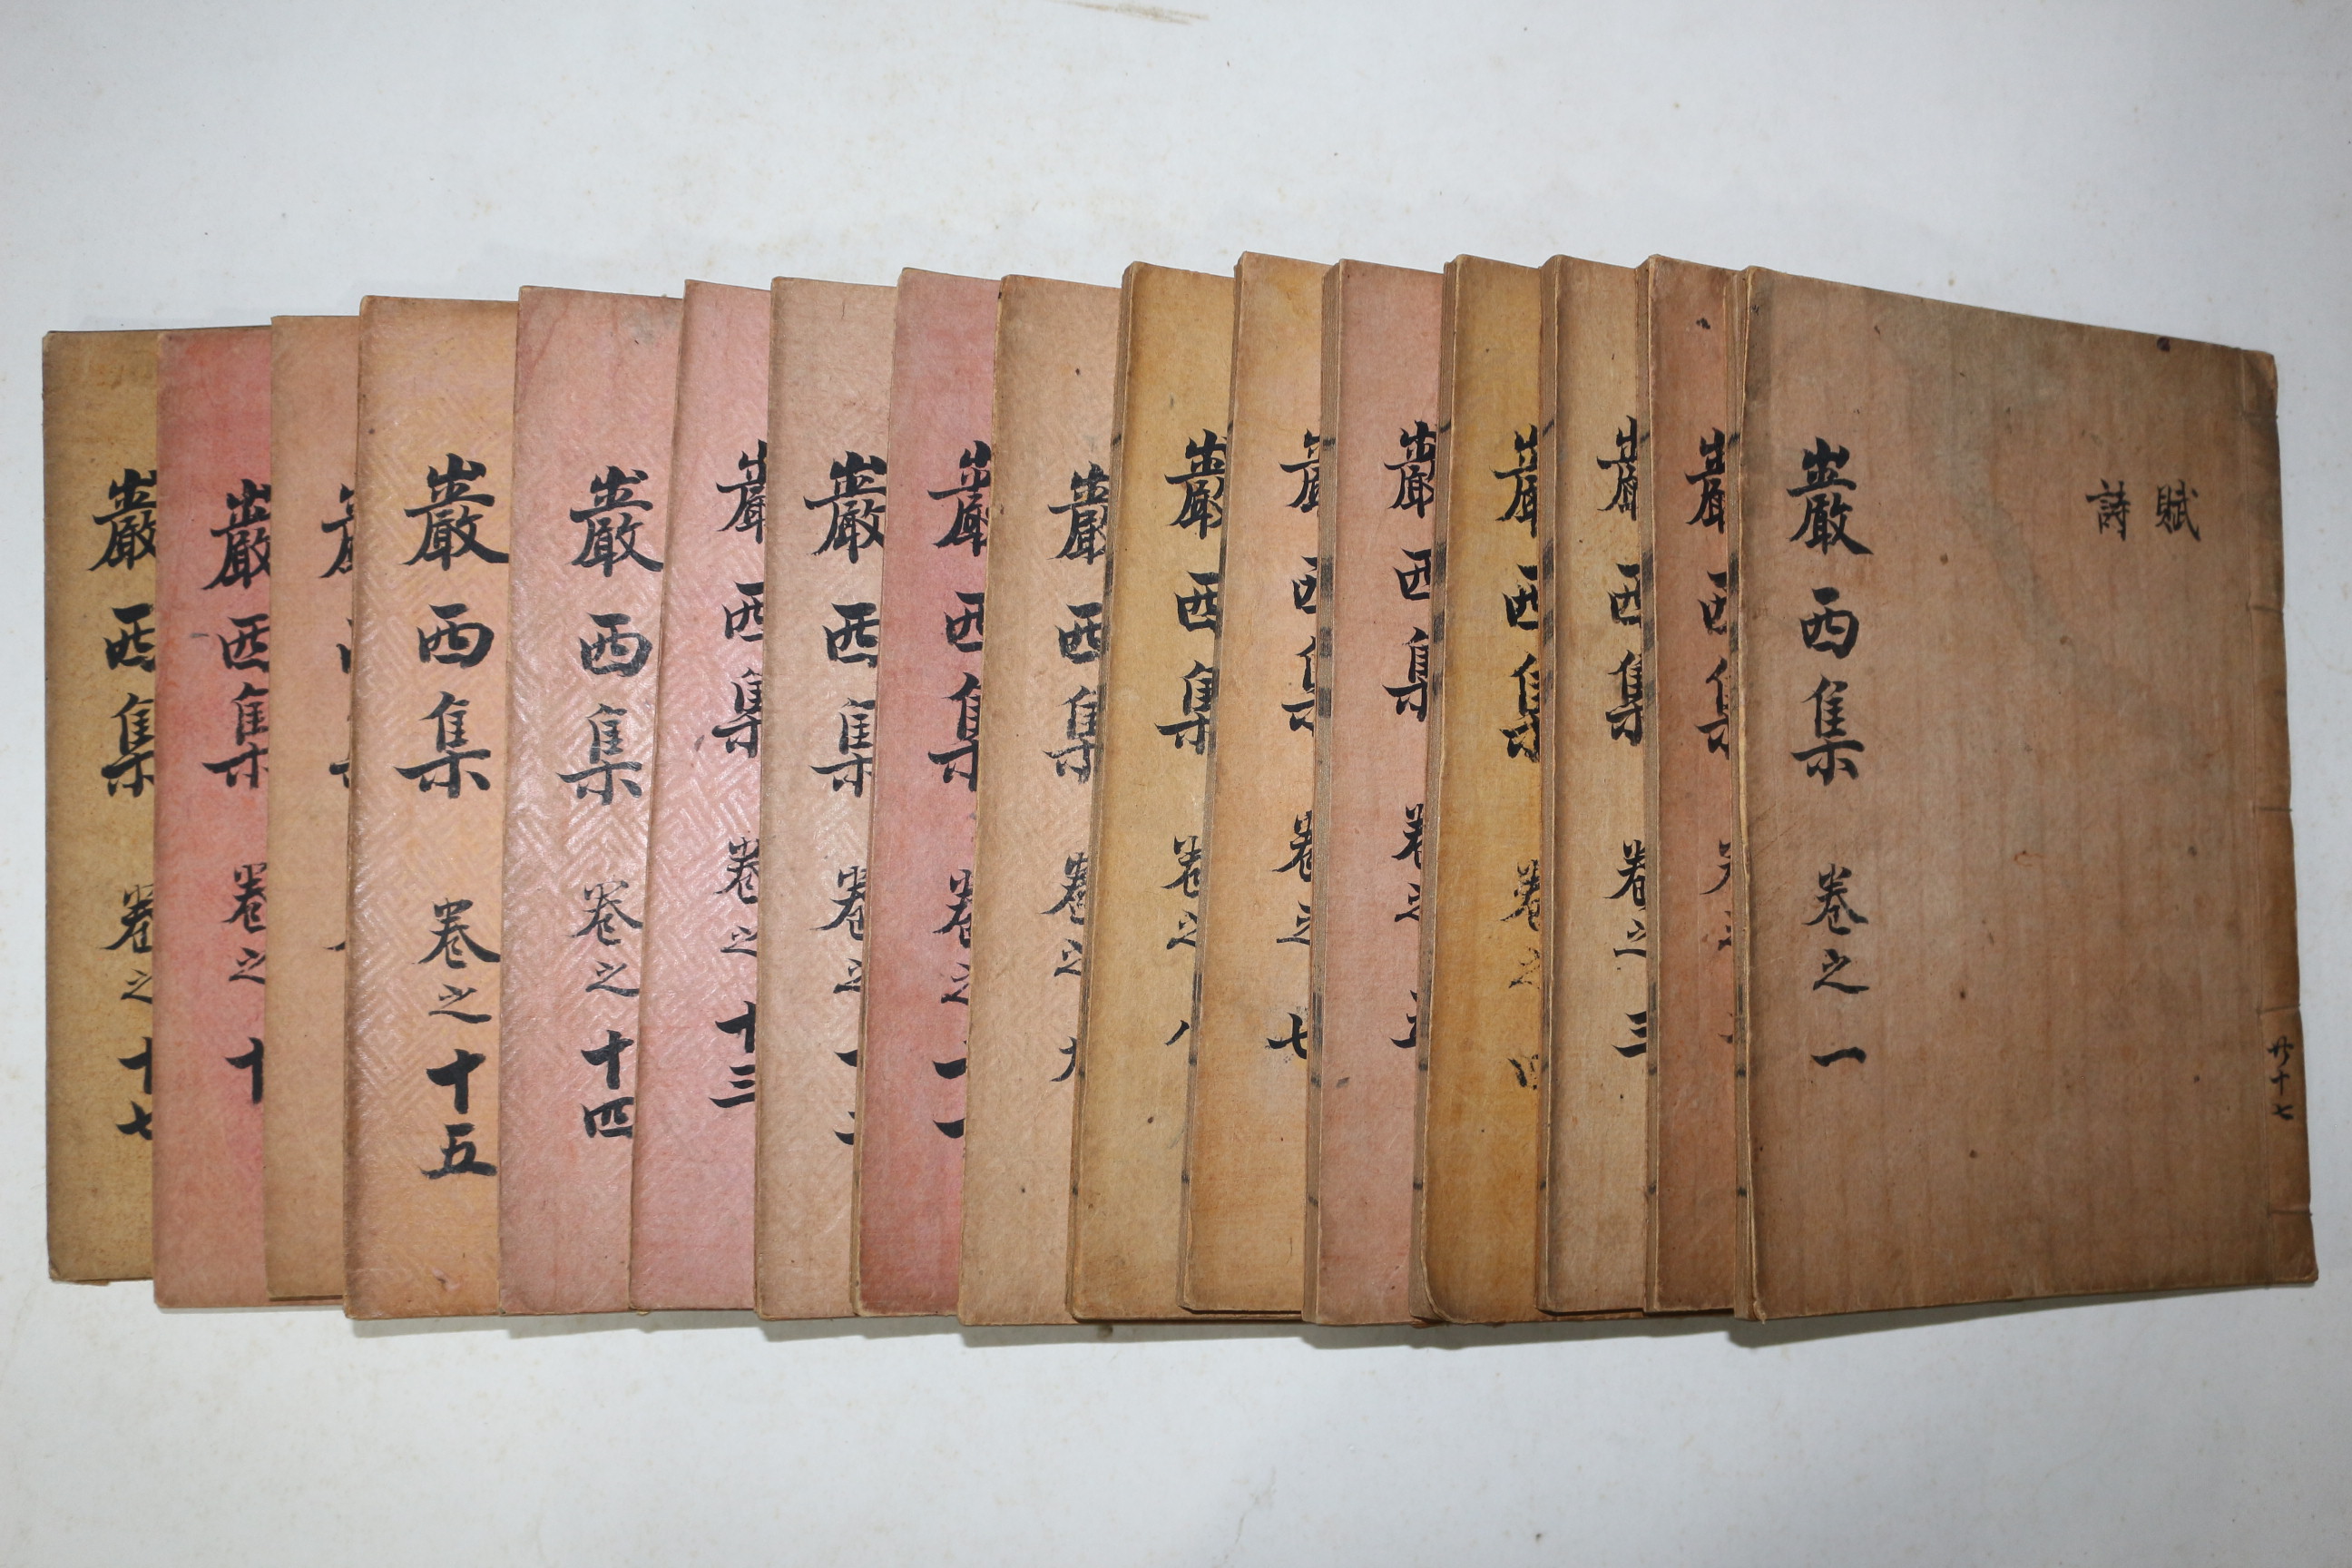 賦
詩
巖西集 卷之一
共十七
巖西集 卷之
巖西集 卷之三
巖西集 卷之四
巖西集 卷之五
巖西集 卷之七
巖西集 卷之八
巖西集 卷之九
巖西集 卷之十一
巖西集 卷之十二
巖西集 卷之十三
巖西集 卷之十四
巖西集 卷之十五
巖西集 卷之十
巖西集 卷之十七